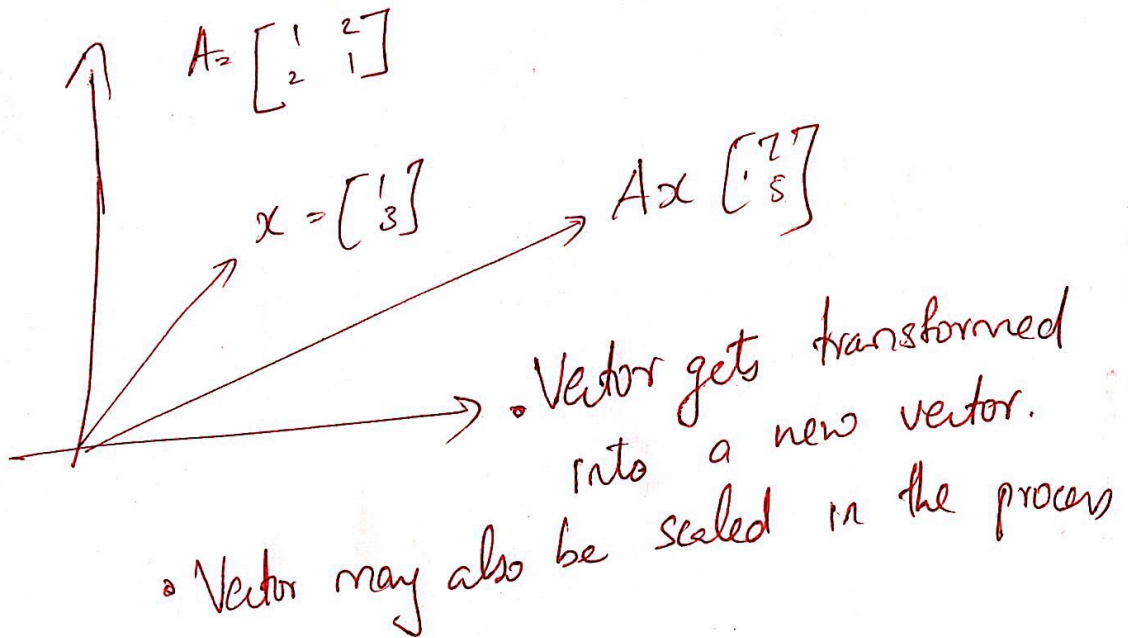 A = [ 1 2
2 1 ]
x = [ 1
3 ]
Ax [ 7
5 ]
• Vector gets transformed
into a new vector.
• Vector may also be scaled in the process